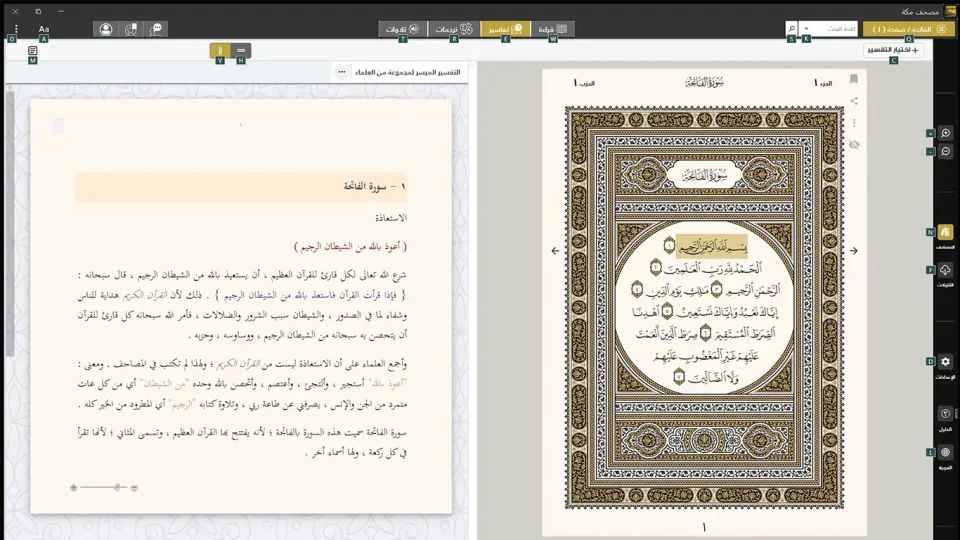 مصحف مكة
الفاتحة / صفحة (١)
Q
كلمة البحث
K
S
قراءة
W
تفاسير
E
ترجمات
R
تلاوات
T
Aa
A
D
+ اختيار التفسير
C
H
V
M
الجزء ١
سُورَةُ الفَاتِحَةِ
الحزب ١
سُورَةُ الفَاتِحَةِ
بِسْمِ ٱللَّهِ ٱلرَّحْمَٰنِ ٱلرَّحِيمِ ١
ٱلْحَمْدُ لِلَّهِ رَبِّ ٱلْعَٰلَمِينَ ٢
ٱلرَّحْمَٰنِ ٱلرَّحِيمِ ٣ مَٰلِكِ يَوْمِ ٱلدِّينِ ٤
إِيَّاكَ نَعْبُدُ وَإِيَّاكَ نَسْتَعِينُ ٥ ٱهْدِنَا
ٱلصِّرَٰطَ ٱلْمُسْتَقِيمَ ٦ صِرَٰطَ ٱلَّذِينَ أَنْعَمْتَ
عَلَيْهِمْ غَيْرِ ٱلْمَغْضُوبِ عَلَيْهِمْ
وَلَا ٱلضَّآلِّينَ ٧
١
التفسير الميسر لمجموعة من العلماء
١ – سورة الفاتحة
الاستعاذة
( أعوذ بالله من الشيطان الرجيم )
شرع الله تعالى لكل قارئ للقرآن العظيم ، أن يستعيذ بالله من الشيطان الرجيم ، قال سبحانه :
{ فإذا قرأت القرآن فاستعذ بالله من الشيطان الرجيم } . ذلك لأن القرآن الكريم هداية للناس
وشفاء لما في الصدور ، والشيطان سبب الشرور والضلالات ، فأمر الله سبحانه كل قارئ للقرآن
أن يتحصن به سبحانه من الشيطان الرجيم ، ووساوسه ، وحزبه .
وأجمع العلماء على أن الاستعاذة ليست من القرآن الكريم ؛ ولهذا لم تكتب في المصاحف . ومعنى :
"أعوذ بالله" أستجير ، وألتجئ ، وأعتصم ، وأتحصن بالله وحده "من الشيطان" أي من كل عات
متمرد من الجن والإنس ، يصرفني عن طاعة ربي ، وتلاوة كتابه "الرجيم" أي المطرود من الخير كله .
سورة الفاتحة سميت هذه السورة بالفاتحة ؛ لأنه يفتتح بها القرآن العظيم ، وتسمى المثاني ؛ لأنها تقرأ
في كل ركعة ، ولها أسماء أخر .
+
-
N
المصاحف
F
التنزيلات
D
الإعدادات
الدليل
L
العربية